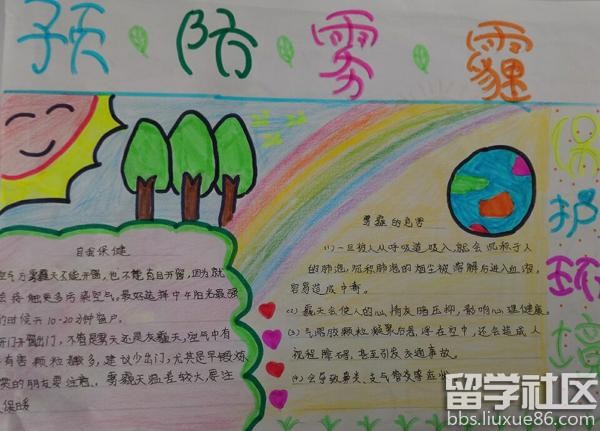 预防雾霾
保护环境
自我保健
空气方雾霾天不能开窗,也不能盲目开窗,因为就
会接触更多污染空气,最好选择中午阳光最强
的时候开10-20分钟窗户。
开门开窗出门,不管是雾天还是灰霾天,空气中有
有害颗粒物多,建议少出门,尤其是早晚
的朋友要注意,雾霾天温差较大,要注
保暖
雾霾的危害
(1)一旦被人从呼吸道吸入,就会沉积于人
的肺泡,沉积肺泡的烟尘被溶解后进入血液,
容易造成中毒。
(2)霾天会使人的心情灰暗压抑,影响心理健康。
(3)气溶胶颗粒凝聚后悬浮在空中,还会造成人
视程障碍,甚至引发交通事故。
(4)会导致鼻炎、支气管炎等症状
留学社区
bbs.liuxue86.com